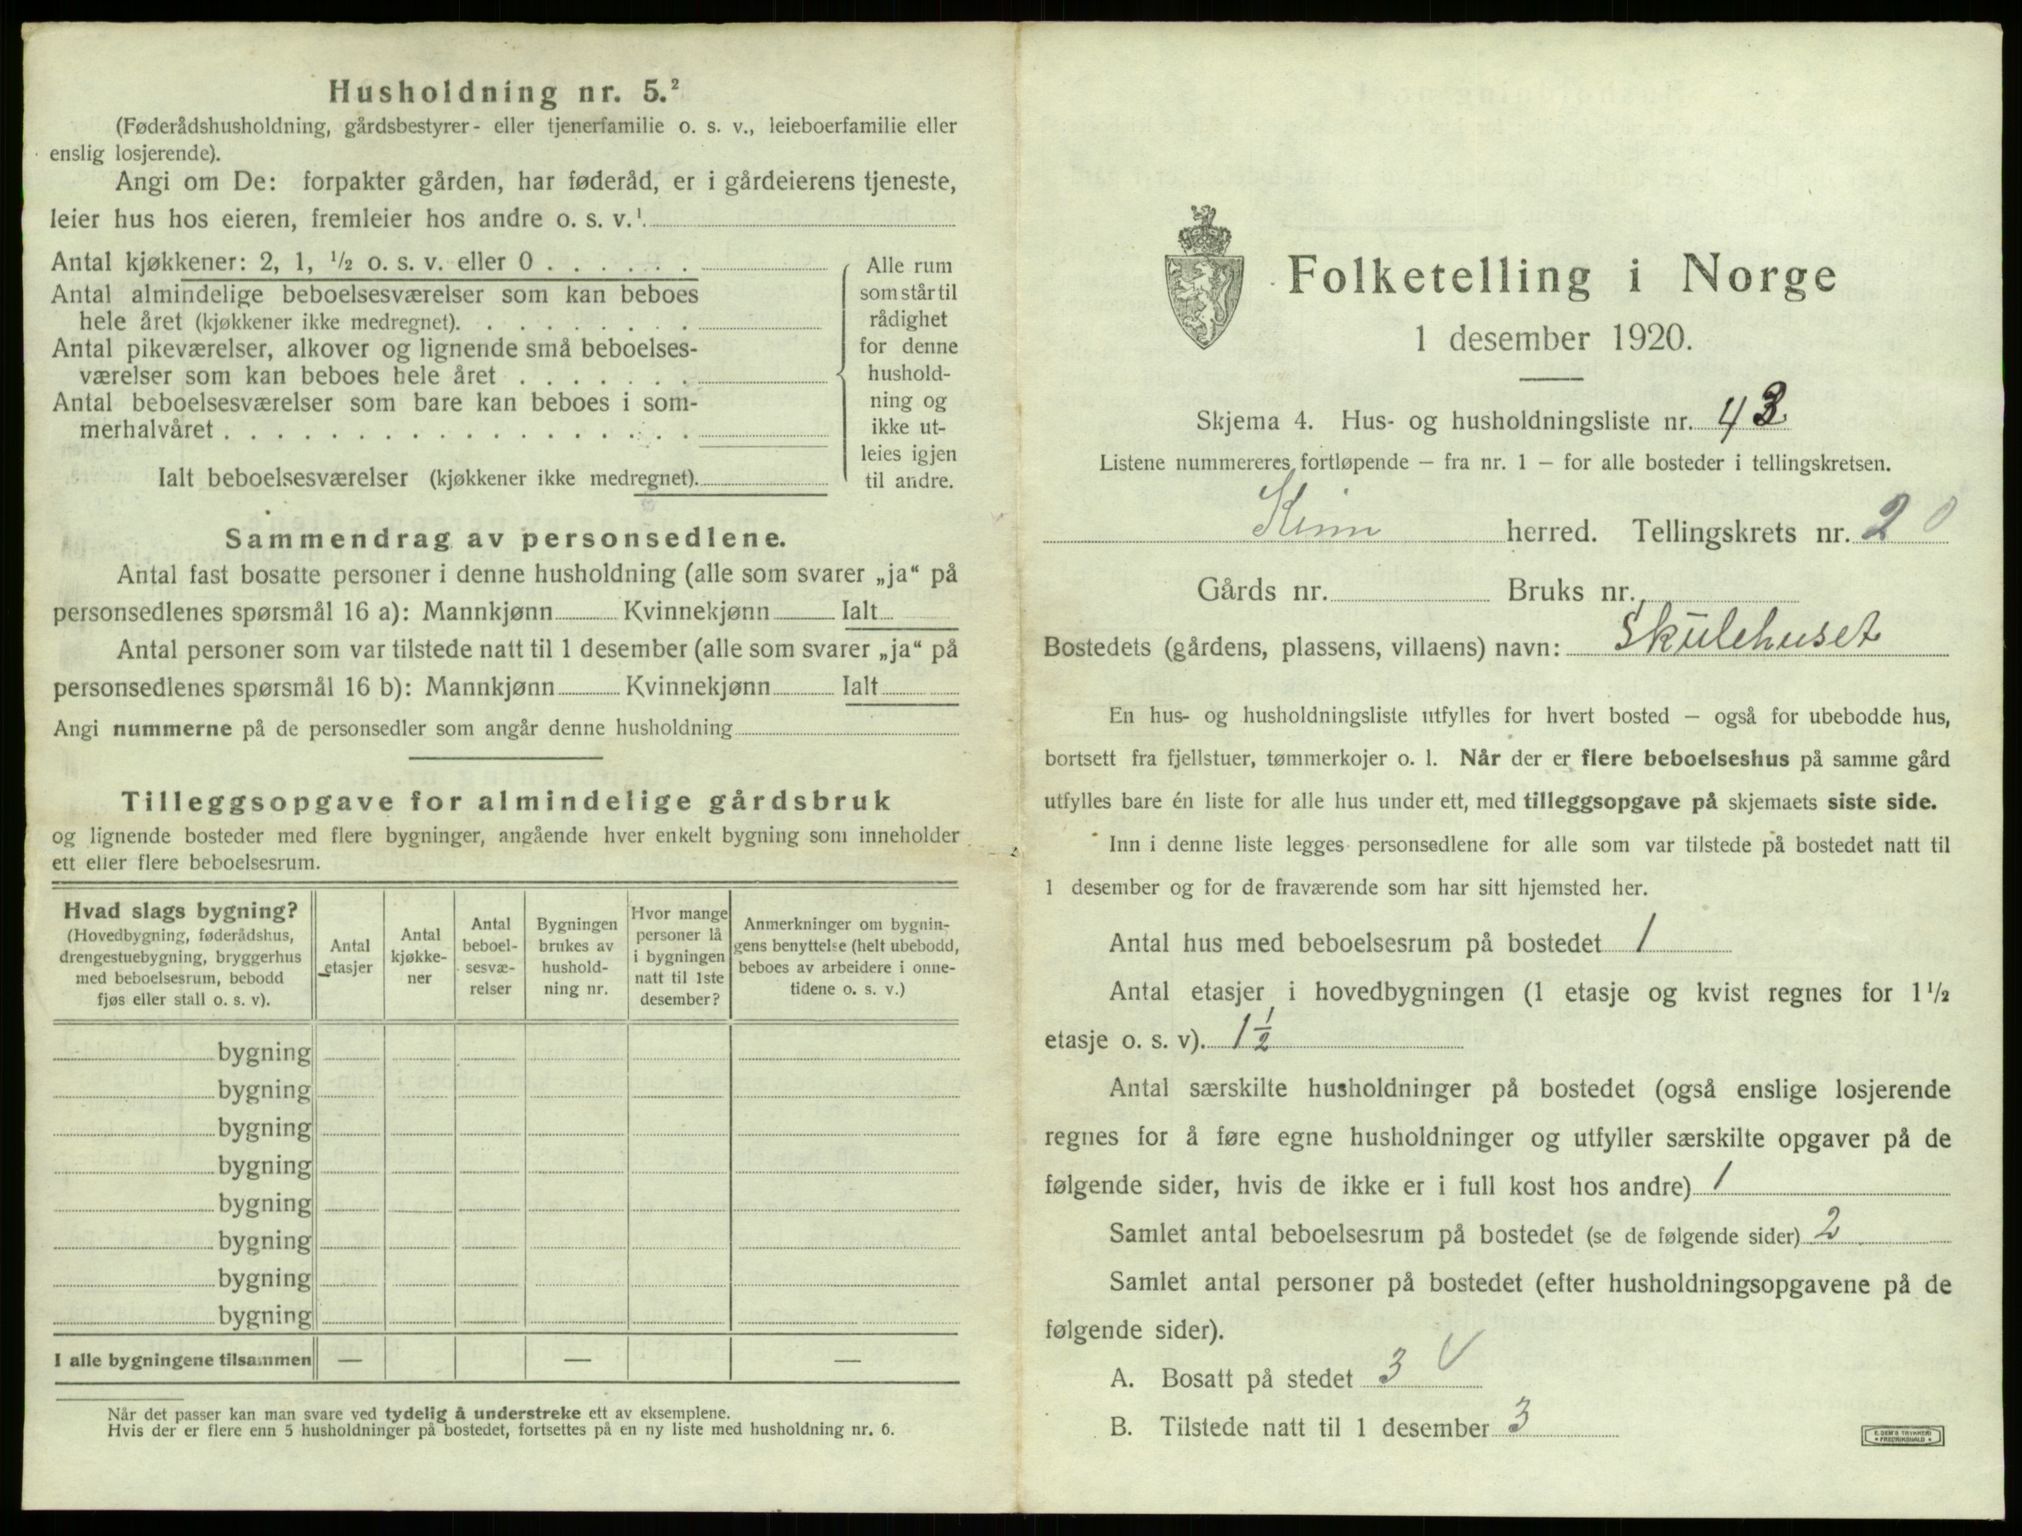 Husholdning nr. 5.²
(Føderådshusholdning, gårdsbestyrer- eller tjenerfamilie o. s. v., leieboerfamilie eller
enslig losjerende).
Angi om De: forpakter gården, har føderåd, er i gårdeierens tjeneste,
leier hus hos eieren, fremleier hos andre o. s. v.¹
Antal kjøkkener: 2, 1, ½ o. s. v. eller 0 . . . . . .
Antal almindelige beboelsesværelser som kan beboes
hele året (kjøkkener ikke medregnet). . . . . . . . .
Antal pikeværelser, alkover og lignende små beboelses-
værelser som kan beboes hele året . . . . . . .
Antal beboelsesværelser som bare kan beboes i som-
merhalvåret . . . . . . . . . . . . . . . . . .
Ialt beboelsesværelser (kjøkkener ikke medregnet).
Alle rum
som står til
rådighet
for denne
hushold-
ning og
ikke ut-
leies igjen
til andre.
Sammendrag av personsedlene.
Antal fast bosatte personer i denne husholdning (alle som svarer „ja“ på
personsedlenes spørsmål 16 a): Mannkjønn Kvinnekjønn Ialt
Antal personer som var tilstede natt til 1 desember (alle som svarer „ja“ på
personsedlenes spørsmål 16 b): Mannkjønn Kvinnekjønn Ialt
Angi nummerne på de personsedler som angår denne husholdning
Tilleggsopgave for almindelige gårdsbruk
og lignende bosteder med flere bygninger, angående hver enkelt bygning som inneholder
ett eller flere beboelsesrum.
Hvad slags bygning?
(Hovedbygning, føderådshus,
drengestuebygning, bryggerhus
med beboelsesrum, bebodd
fjøs eller stall o. s. v).
Antal
etasjer
Antal
kjøkke-
ner
Antal
beboel-
sesvæ-
relser
Bygningen
brukes av
hushold-
ning nr.
Hvor mange
personer lå
i bygningen
natt til 1ste
desember?
Anmerkninger om bygnin-
gens benyttelse (helt ubebodd,
beboes av arbeidere i onne-
tidene o. s. v.)
bygning
bygning
bygning
bygning
bygning
bygning
bygning
bygning
I alle bygningene tilsammen — — —
Når det passer kan man svare ved tydelig å understreke ett av eksemplene.
Hvis der er flere enn 5 husholdninger på bostedet, fortsettes på en ny liste med husholdning nr. 6.
Folketelling i Norge
1 desember 1920.
Skjema 4. Hus- og husholdningsliste nr. 43
Listene nummereres fortløpende — fra nr. 1 — for alle bosteder i tellingskretsen.
Kinn herred. Tellingskrets nr. 20
Gårds nr. Bruks nr.
Bostedets (gårdens, plassens, villaens) navn: Skulehuset
En hus- og husholdningsliste utfylles for hvert bosted — også for ubebodde hus,
bortsett fra fjellstuer, tømmerkojer o. l. Når der er flere beboelseshus på samme gård
utfylles bare én liste for alle hus under ett, med tilleggsopgave på skjemaets siste side.
Inn i denne liste legges personsedlene for alle som var tilstede på bostedet natt til
1 desember og for de fraværende som har sitt hjemsted her.
Antal hus med beboelsesrum på bostedet 1
Antal etasjer i hovedbygningen (1 etasje og kvist regnes for 1½
etasje o. s. v). 1½
Antal særskilte husholdninger på bostedet (også enslige losjerende
regnes for å føre egne husholdninger og utfyller særskilte opgaver på de
følgende sider, hvis de ikke er i full kost hos andre) 1
Samlet antal beboelsesrum på bostedet (se de følgende sider) 2
Samlet antal personer på bostedet (efter husholdningsopgavene på de
følgende sider).
A. Bosatt på stedet 3 V
B. Tilstede natt til 1 desember 3
E. SEM'S TRYKKERI
FREDRIKSHALD